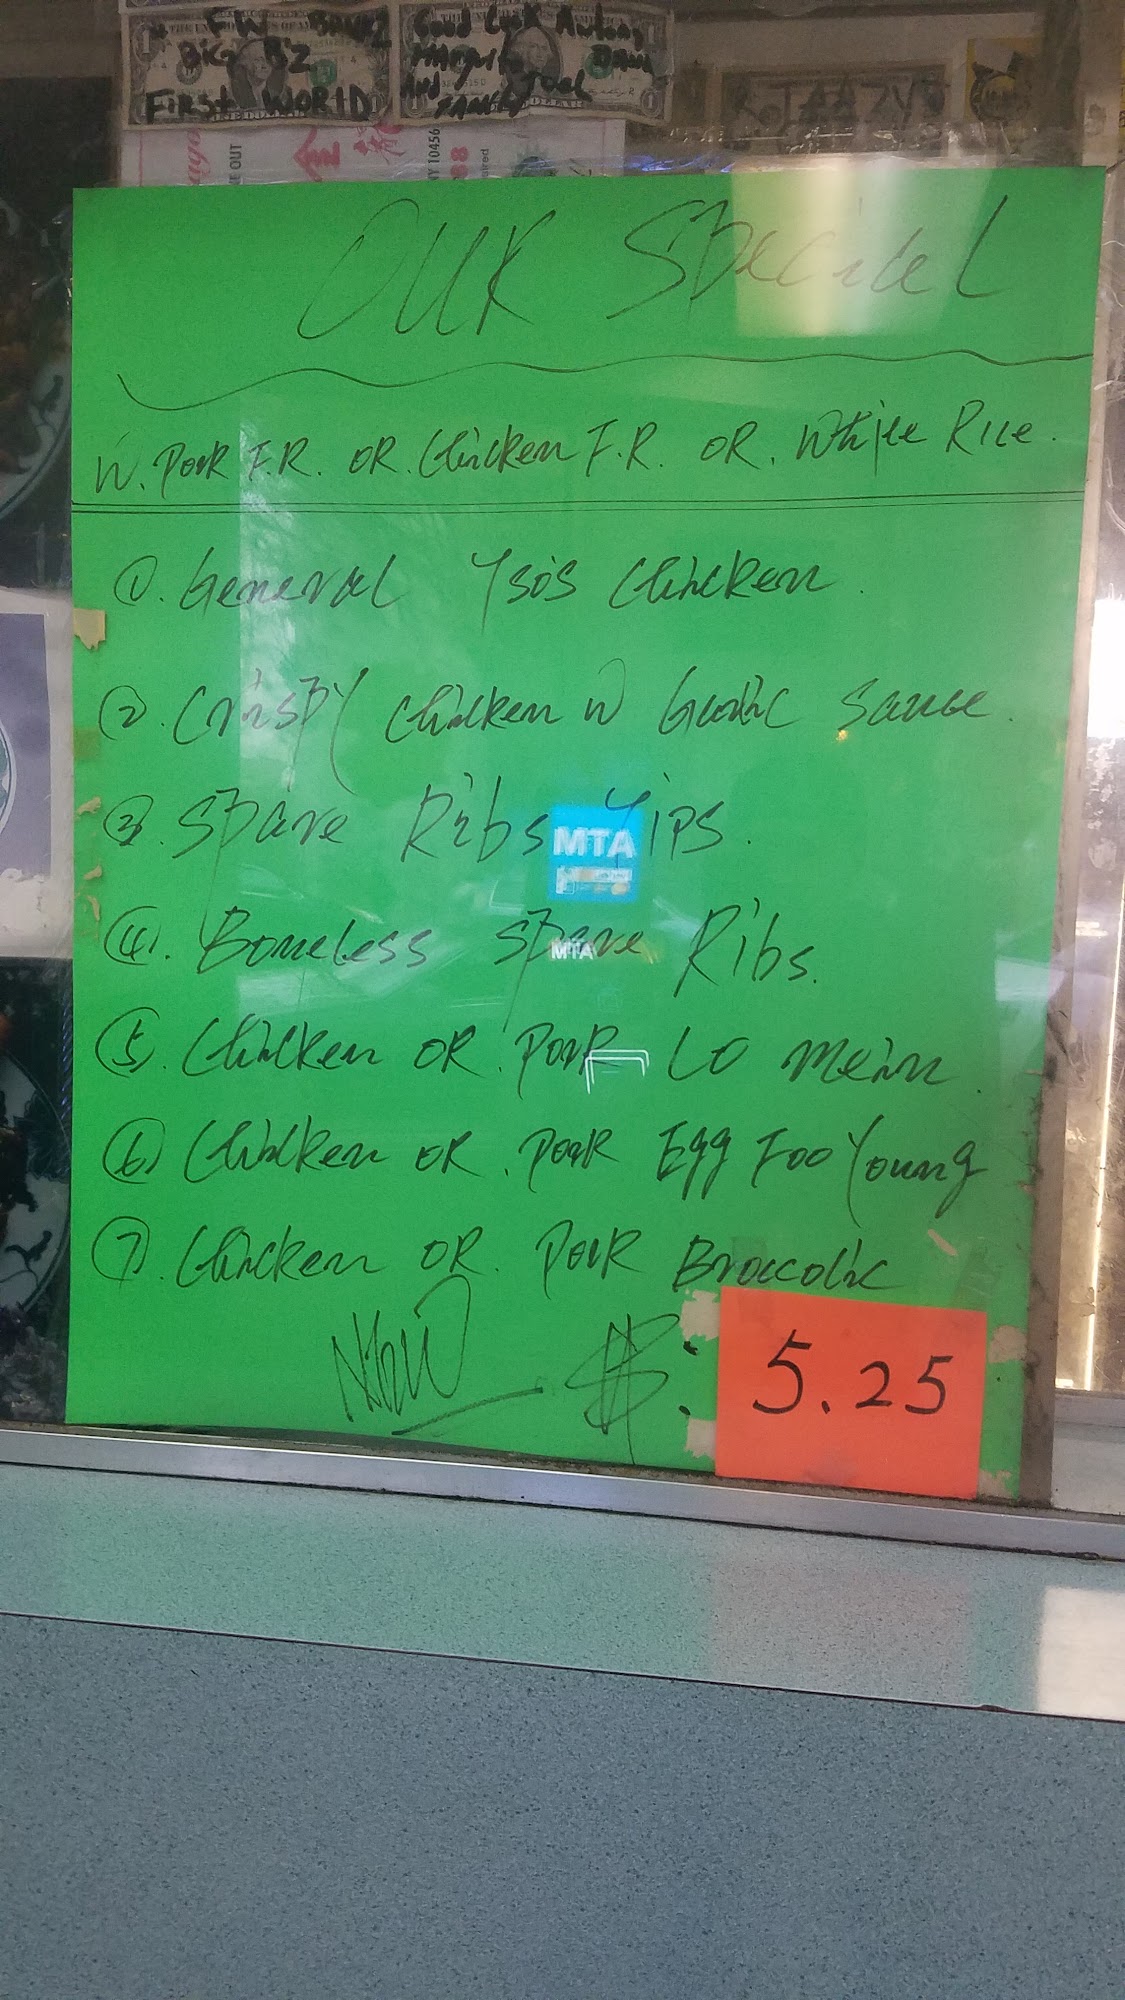 FW BANKZ
BIGG B'z
FIRST WORLD
Good Luck
And
OUR SPECIAL
W. Pork F.R. OR. Chicken F.R. OR. White Rice.
① General Tso's Chicken.
② Crispy Chicken W Garlic Sauce.
③ Spare Ribs Tips.
MTA
④ Boneless Spare Ribs.
MTA
⑤ Chicken OR Pork Lo Mein.
⑥ Chicken OR. Pork Egg Foo Young
⑦ Chicken OR. Pork Broccolic
Now $: 5.25
E OUT
NY 10456